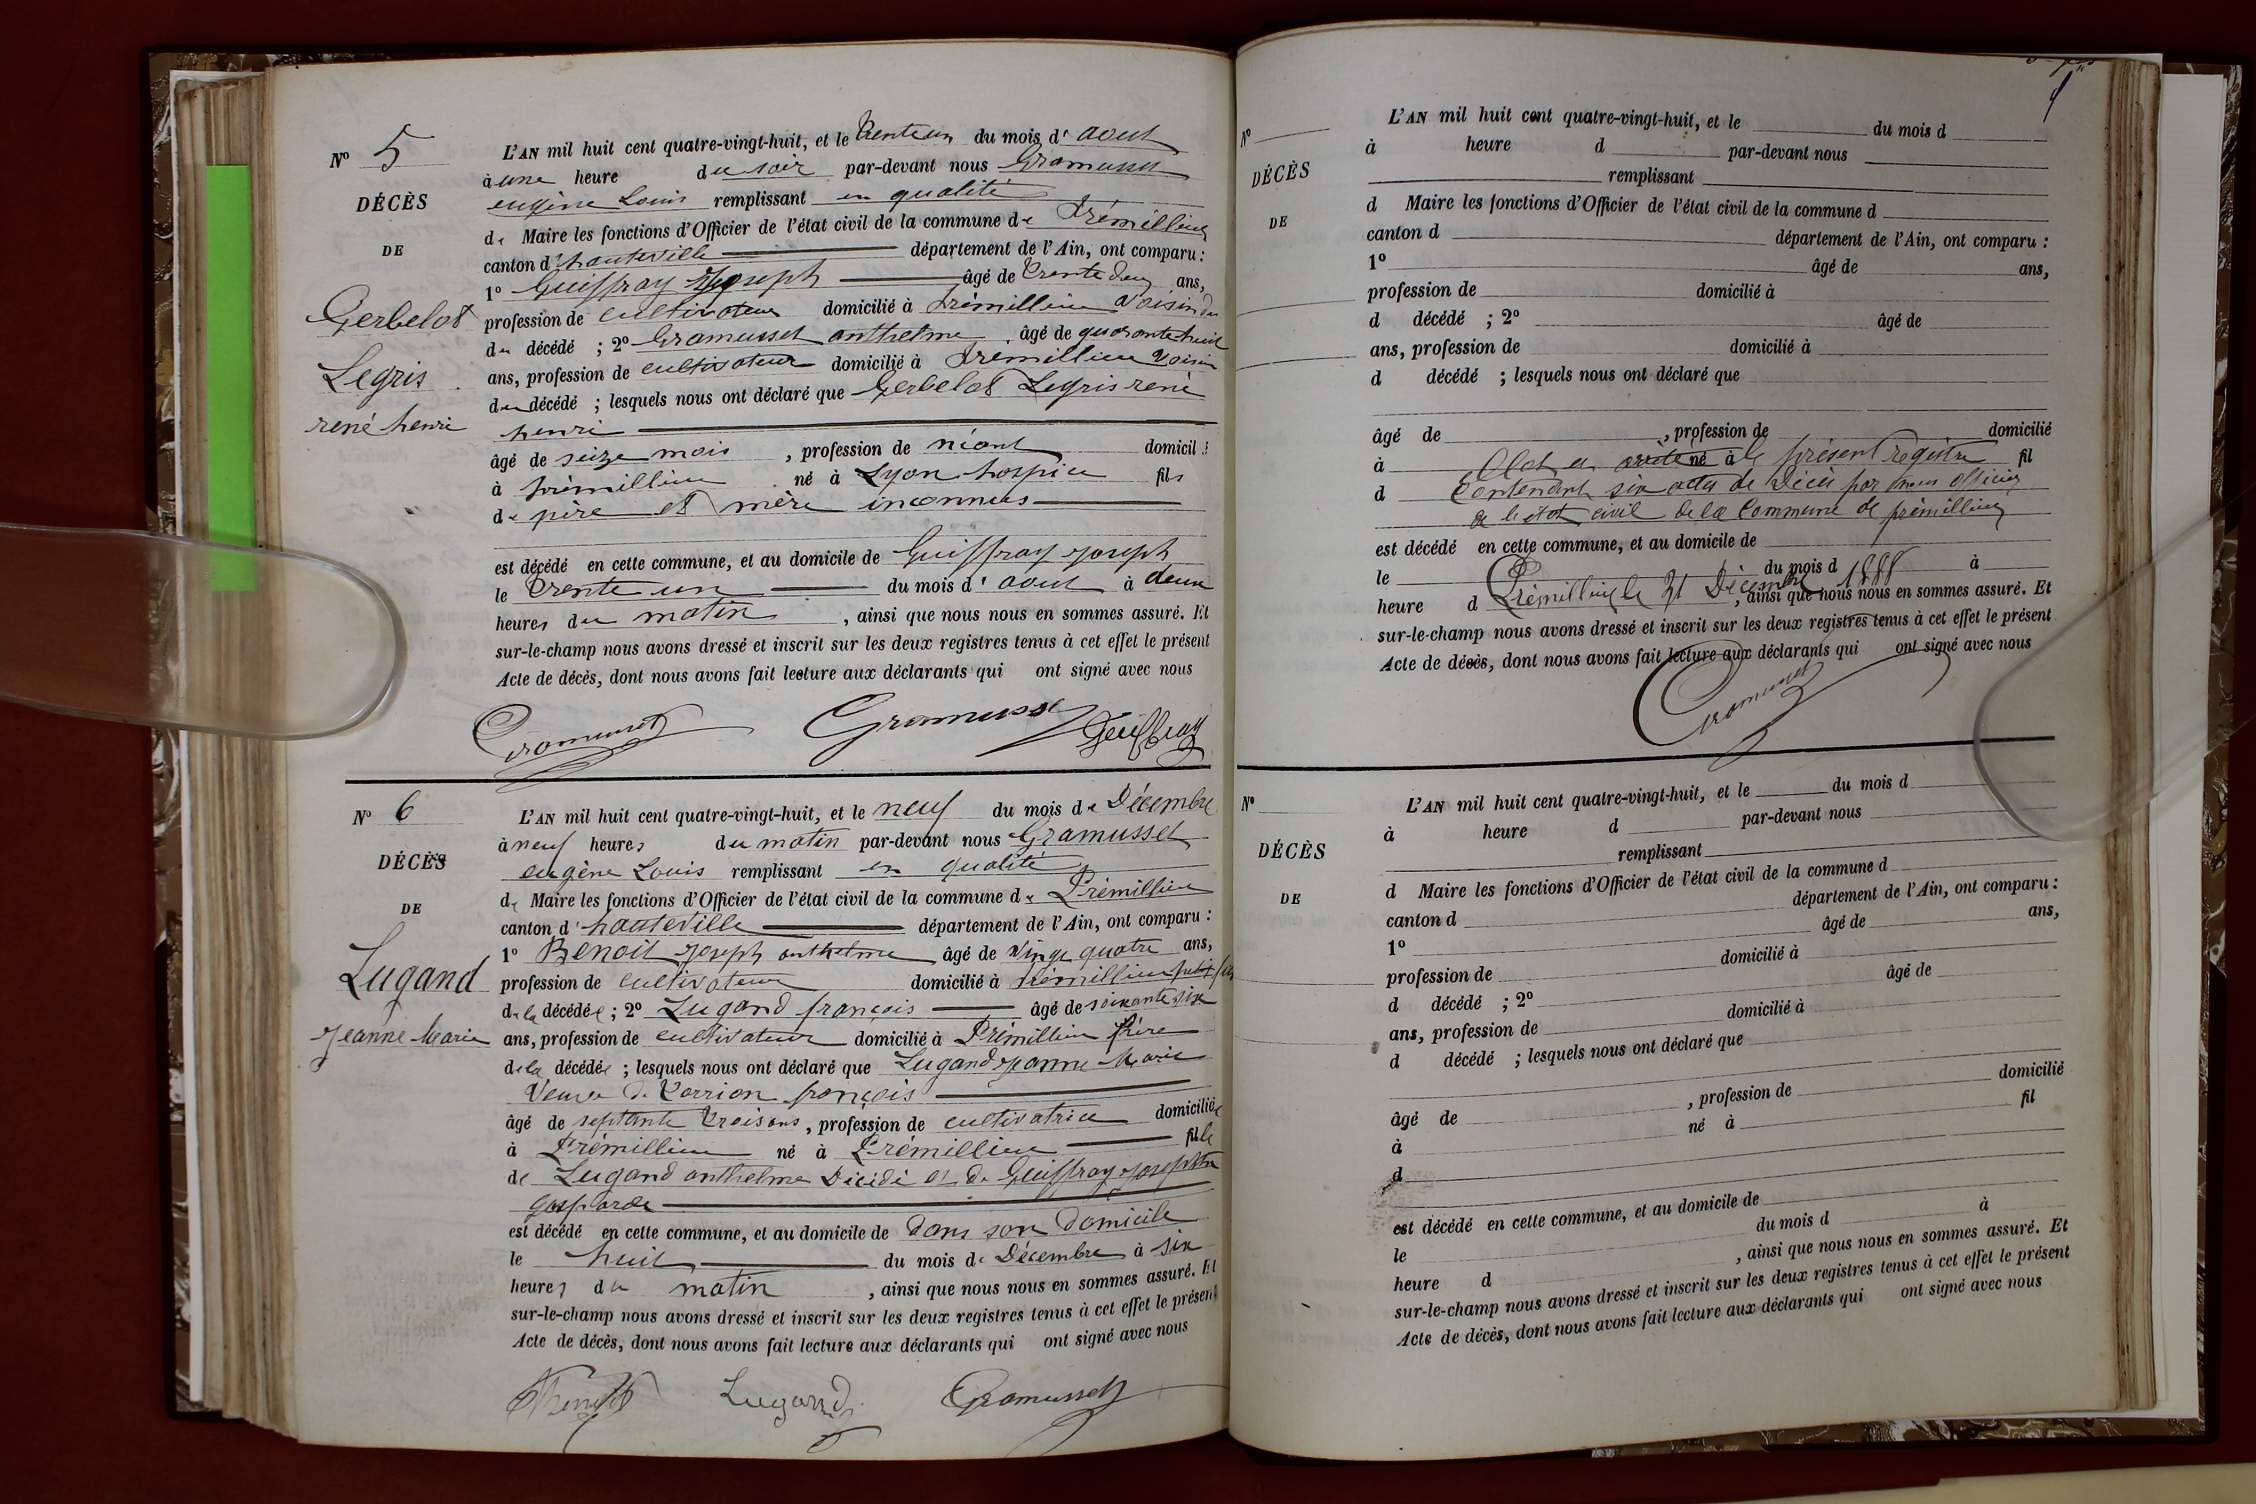 N° 5
DÉCÈS
DE
Gerbelot
Legris
rené henri
L'AN mil huit cent quatre-vingt-huit, et le trente un du mois d' aout
à une heure du soir par-devant nous Gramusset
eugène Louis remplissant en qualité
de Maire les fonctions d'Officier de l'état civil de la commune de Prémillieu
canton d' hauteville département de l'Ain, ont comparu :
1° Guiffray Joseph âgé de trente deux ans,
profession de cultivateur domicilié à Prémillieu voisin du
du décédé ; 2° Gramusset anthelme âgé de quarante huit
ans, profession de cultivateur domicilié à Prémillieu voisin
du décédé ; lesquels nous ont déclaré que Gerbelot Legris rené
henri
âgé de seize mois , profession de néant domicilié
à prémillieu né à Lyon hospice fils
de père et mère inconnus
est décédé en cette commune, et au domicile de Guiffray Joseph
le trente un du mois d' aout à deux
heures du matin , ainsi que nous nous en sommes assuré. Et
sur-le-champ nous avons dressé et inscrit sur les deux registres tenus à cet effet le présent
Acte de décès, dont nous avons fait lecture aux déclarants qui ont signé avec nous
Gramusset Gramusset Guiffray
N° 6
DÉCÈS
DE
Lugand
Jeanne Marie
L'AN mil huit cent quatre-vingt-huit, et le neuf du mois de Décembre
à neuf heures du matin par-devant nous Gramusset
eugène Louis remplissant en qualité
de Maire les fonctions d'Officier de l'état civil de la commune de Prémillieu
canton d' hauteville département de l'Ain, ont comparu :
1° Benoit Joseph anthelme âgé de vingt quatre ans,
profession de cultivateur domicilié à Prémillieu petit fils
de la décédée ; 2° Lugand françois âgé de soixante six
ans, profession de cultivateur domicilié à Prémillieu frère
de la décédée ; lesquels nous ont déclaré que Lugand Jeanne Marie
Veuve de Carrion françois
âgé de septante trois ans , profession de cultivatrice domiciliée
à Prémillieu né à Prémillieu fille
de Lugand anthelme Décédé et de Guiffray Josephte
gasparde
est décédé en cette commune, et au domicile de dans son domicile
le huit du mois de Décembre à six
heures du matin , ainsi que nous nous en sommes assuré. Et
sur-le-champ nous avons dressé et inscrit sur les deux registres tenus à cet effet le présent
Acte de décès, dont nous avons fait lecture aux déclarants qui ont signé avec nous
Benoit Lugand Gramusset
N°
DÉCÈS
DE
L'AN mil huit cent quatre-vingt-huit, et le du mois d
à heure d par-devant nous
remplissant
d Maire les fonctions d'Officier de l'état civil de la commune d
canton d département de l'Ain, ont comparu :
1° âgé de ans,
profession de domicilié à
d décédé ; 2° âgé de
ans, profession de domicilié à
d décédé ; lesquels nous ont déclaré que
âgé de , profession de domicilié
à Clot et arrêté né à le présent registre fil
d Contenant six actes de Décès par nous officier
de l'état civil de la Commune de prémillieu
est décédé en cette commune, et au domicile de
le du mois d à
heure d Prémillieu le 31 Décembre 1888 , ainsi que nous nous en sommes assuré. Et
sur-le-champ nous avons dressé et inscrit sur les deux registres tenus à cet effet le présent
Acte de décès, dont nous avons fait lecture aux déclarants qui ont signé avec nous
Gramusset
N°
DÉCÈS
DE
L'AN mil huit cent quatre-vingt-huit, et le du mois d
à heure d par-devant nous
remplissant
d Maire les fonctions d'Officier de l'état civil de la commune d
canton d département de l'Ain, ont comparu :
1° âgé de ans,
profession de domicilié à
d décédé ; 2° âgé de
ans, profession de domicilié à
d décédé ; lesquels nous ont déclaré que
âgé de , profession de domicilié
à né à fil
d
est décédé en cette commune, et au domicile de
le du mois d à
heure d , ainsi que nous nous en sommes assuré. Et
sur-le-champ nous avons dressé et inscrit sur les deux registres tenus à cet effet le présent
Acte de décès, dont nous avons fait lecture aux déclarants qui ont signé avec nous